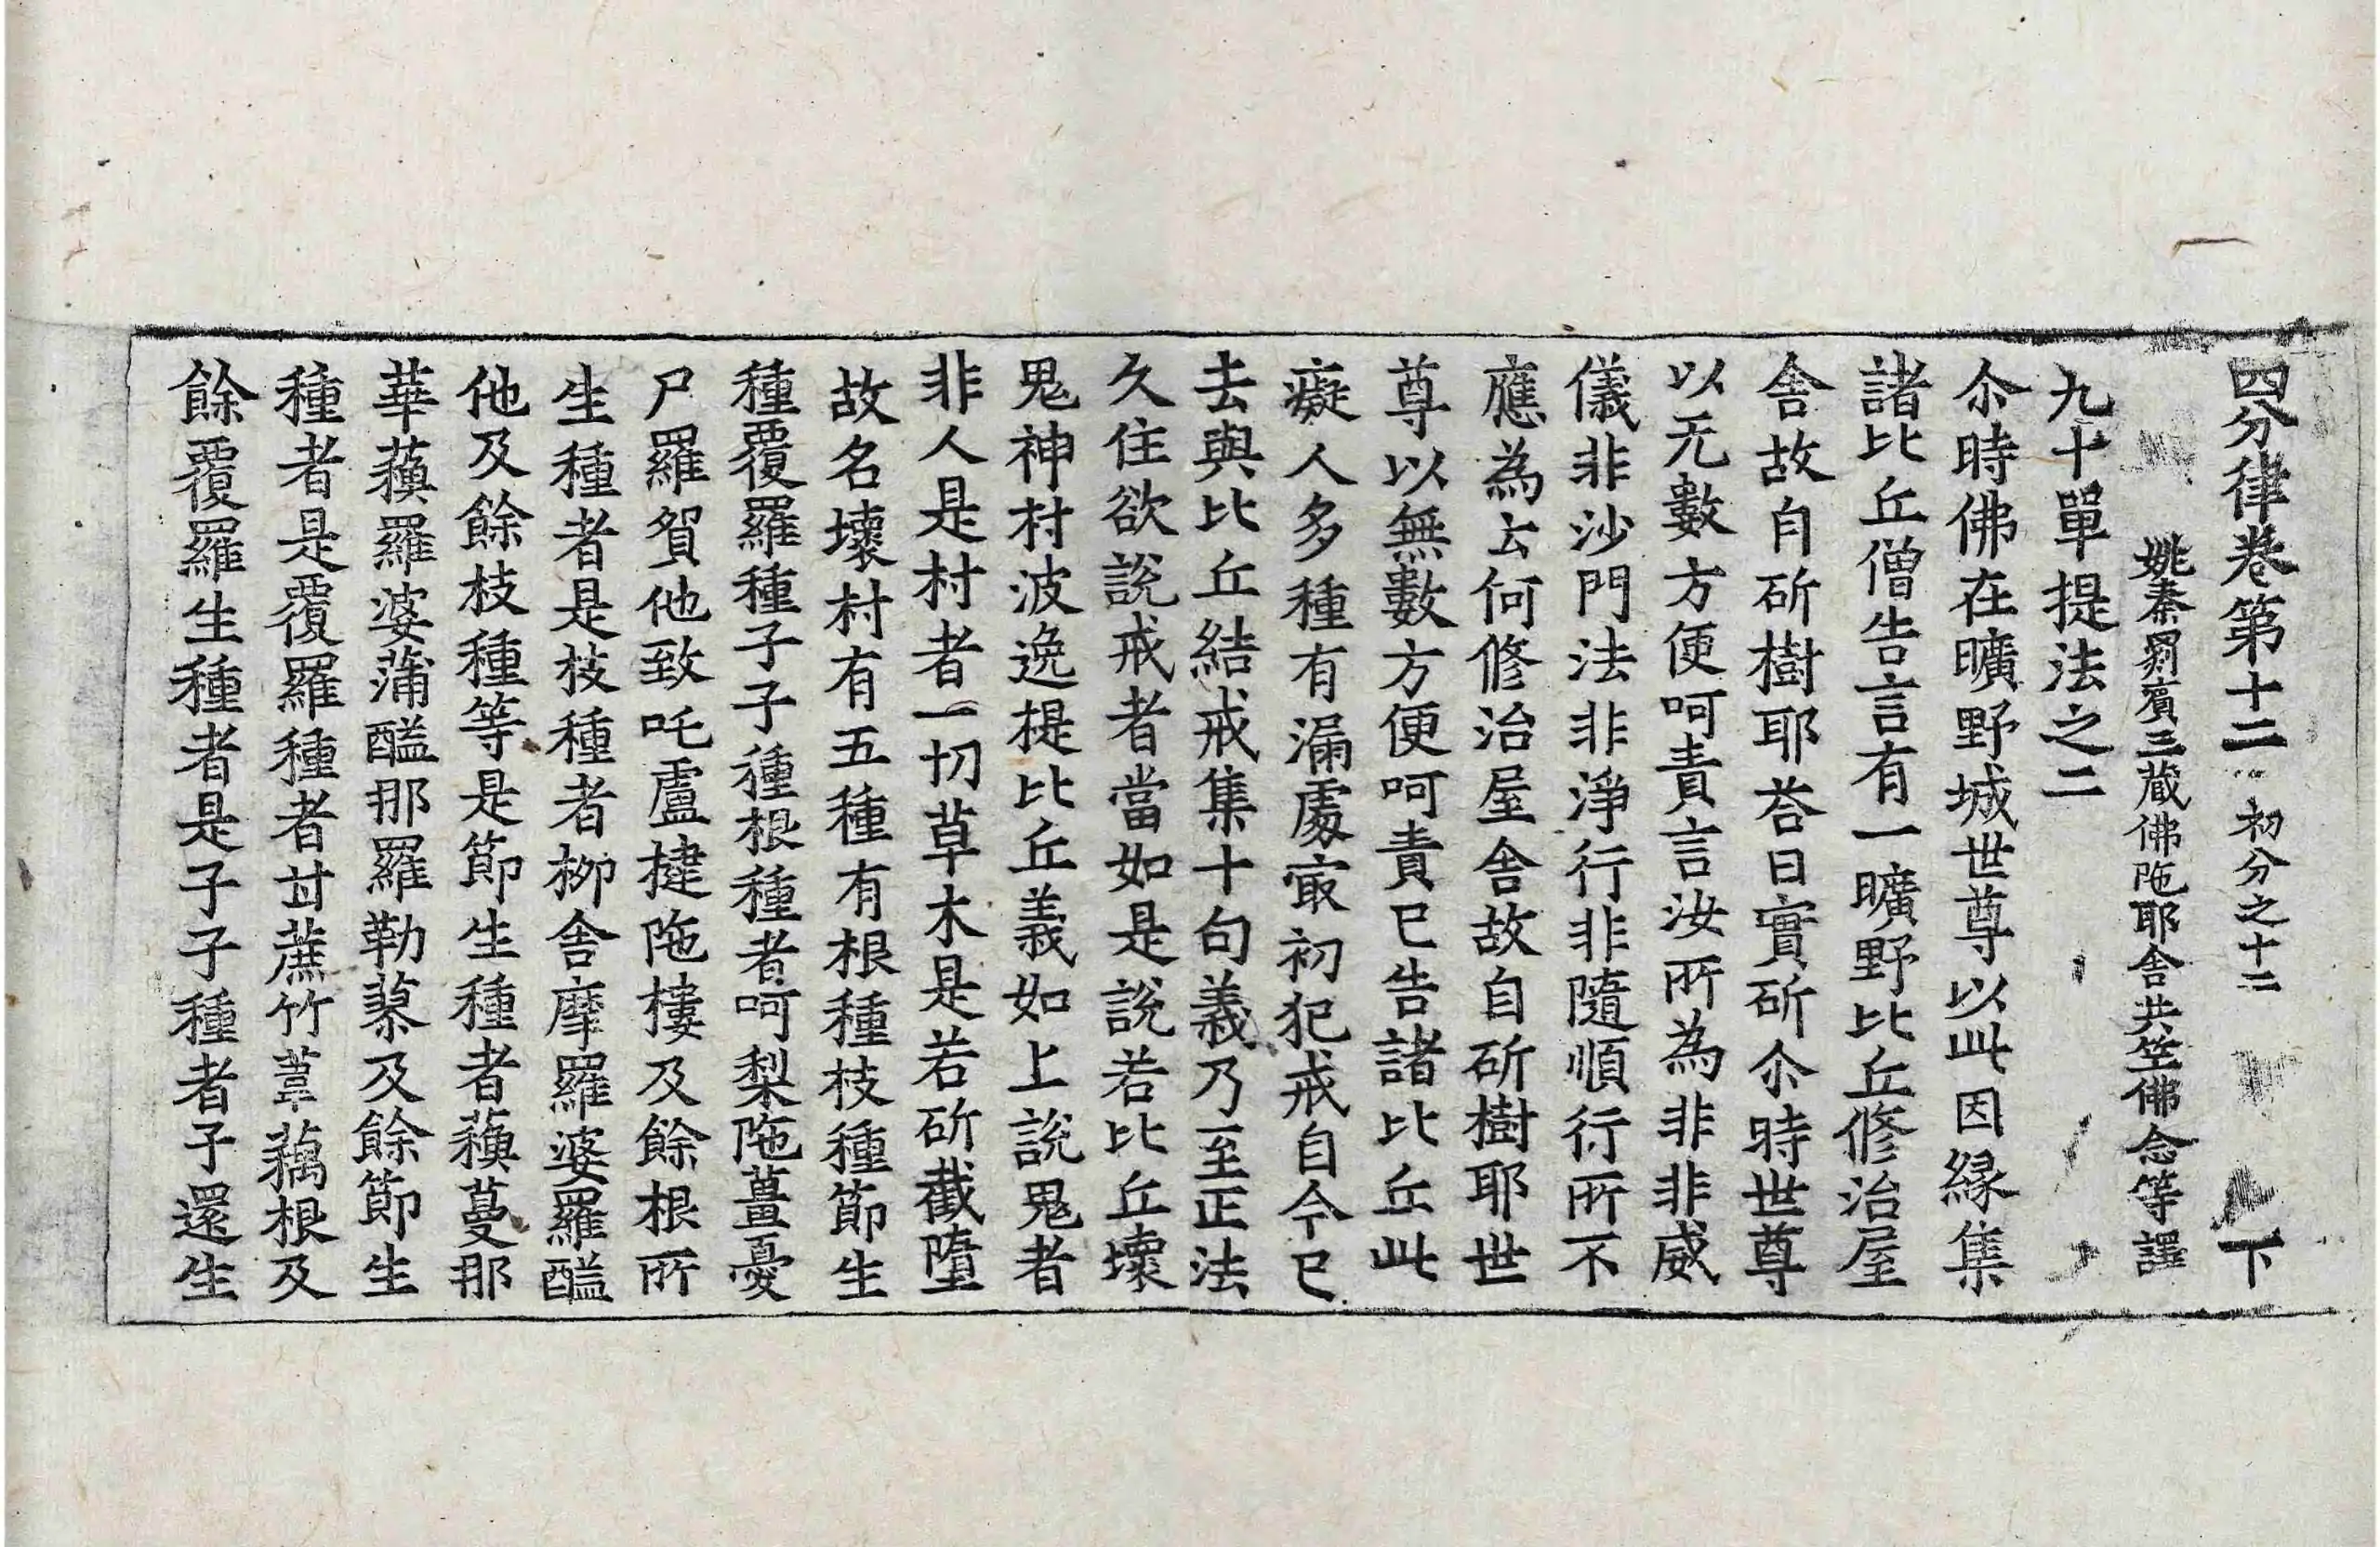 四分律卷第十二 初分之十二 下
姚秦罽賓三藏佛陁耶舍共竺佛念等譯
九十單提法之二
尒時佛在曠野城世尊以此因緣集
諸比丘僧告言有一曠野比丘修治屋
舍故自斫樹耶荅曰實斫尒時世尊
以无數方便呵責言汝所為非非威
儀非沙門法非淨行非隨順行所不
應為云何修治屋舍故自斫樹耶世
尊以無數方便呵責已告諸比丘此
癡人多種有漏處冣初犯戒自今已
去與比丘結戒集十句義乃至正法
久住欲說戒者當如是說若比丘壞
鬼神村波逸提比丘義如上說鬼者
非人是村者一切草木是若斫截墮
故名壞村有五種有根種枝種節生
種覆羅種子子種根種者呵梨陁薑憂
尸羅賀他致吒盧揵陁樓及餘根所
生種者是枝種者柳舍摩羅婆羅醯
他及餘枝種等是節生種者蘱蔓那
華蘱羅婆蒲醯那羅勒蓼及餘節生
種者是覆羅種者甘蔗竹葦藕根及
餘覆羅生種者是子子種者子還生